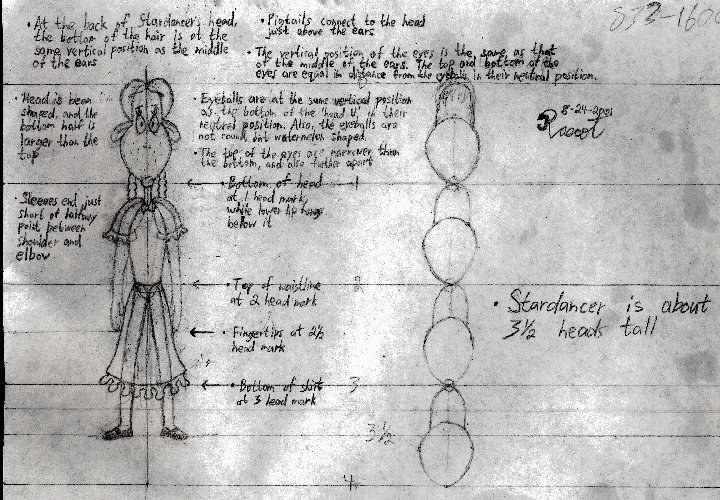 • At the back of Stardancer's head,
the bottom of the hair is at the
same vertical position as the middle
of the ears
• Pigtails connect to the head
just above the ears
• The vertical position of the eyes is the same as that
of the middle of the ears. The top and bottom of the
eyes are equal in distance from the eyeballs in their neutral position.
8-24-2001
• Head is bean
shaped, and the
bottom half is
larger than the
top
• Eyeballs are at the same vertical position
as the bottom of the head U in their
neutral position. Also, the eyeballs are
not round, but watermelon shaped
• The top of the eyes are narrower than
the bottom, and also further apart
• Bottom of head
at 1 head mark,
while lower lip hangs
below it
1
• Sleeves end just
short of halfway
point between
shoulder and
elbow
• Top of waistline
at 2 head mark
2
• Stardancer is about
3½ heads tall
• Fingertips at 2½
head mark
• Bottom of skirt
at 3 head mark
3
3½
4